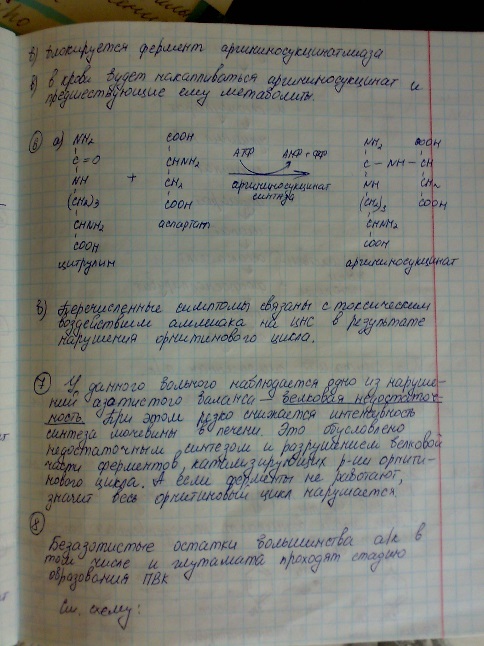 б) блокируется фермент аргининосукцинатлиаза
в) в крови будет накапливаться аргининосукцинат и
предшествующие ему метаболиты.
6 а) NH2 COOH NH2 COOH
C=O CHNH2 АТФ АМФ + ФФ C – NH – CH
NH + CH2 аргининосукцинат NH CH2
(CH2)3 COOH синтаза (CH2)3 COOH
CHNH2 аспартат CHNH2
COOH COOH
цитрулин аргининосукцинат
в) Перечисленные симптомы связаны с токсическим
воздействием аммиака на ЦНС в результате
нарушения орнитинового цикла.
7 У данного больного наблюдается одно из наруше-
ний азотистого баланса – белковая недостаточ-
ность. При этом резко снижается интенсивность
синтеза мочевины в печени. Это обусловлено
недостаточным синтезом и разрушением белковой
части ферментов, катализирующих р-ии орнити-
нового цикла. А если ферменты не работают,
значит весь орнитиновый цикл нарушается.
8
Безазотистые остатки большинства а/к в
том числе и глутамата проходят стадию
образования ПВК
См. схему: